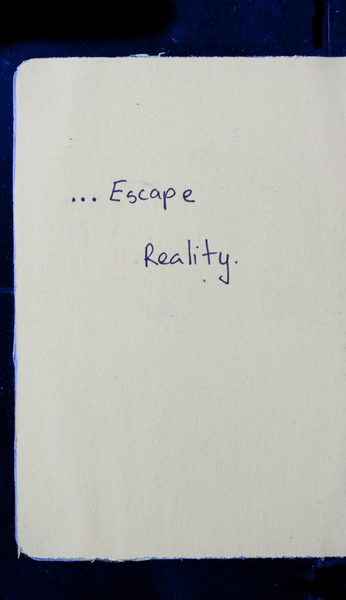 ... Escape
Reality.